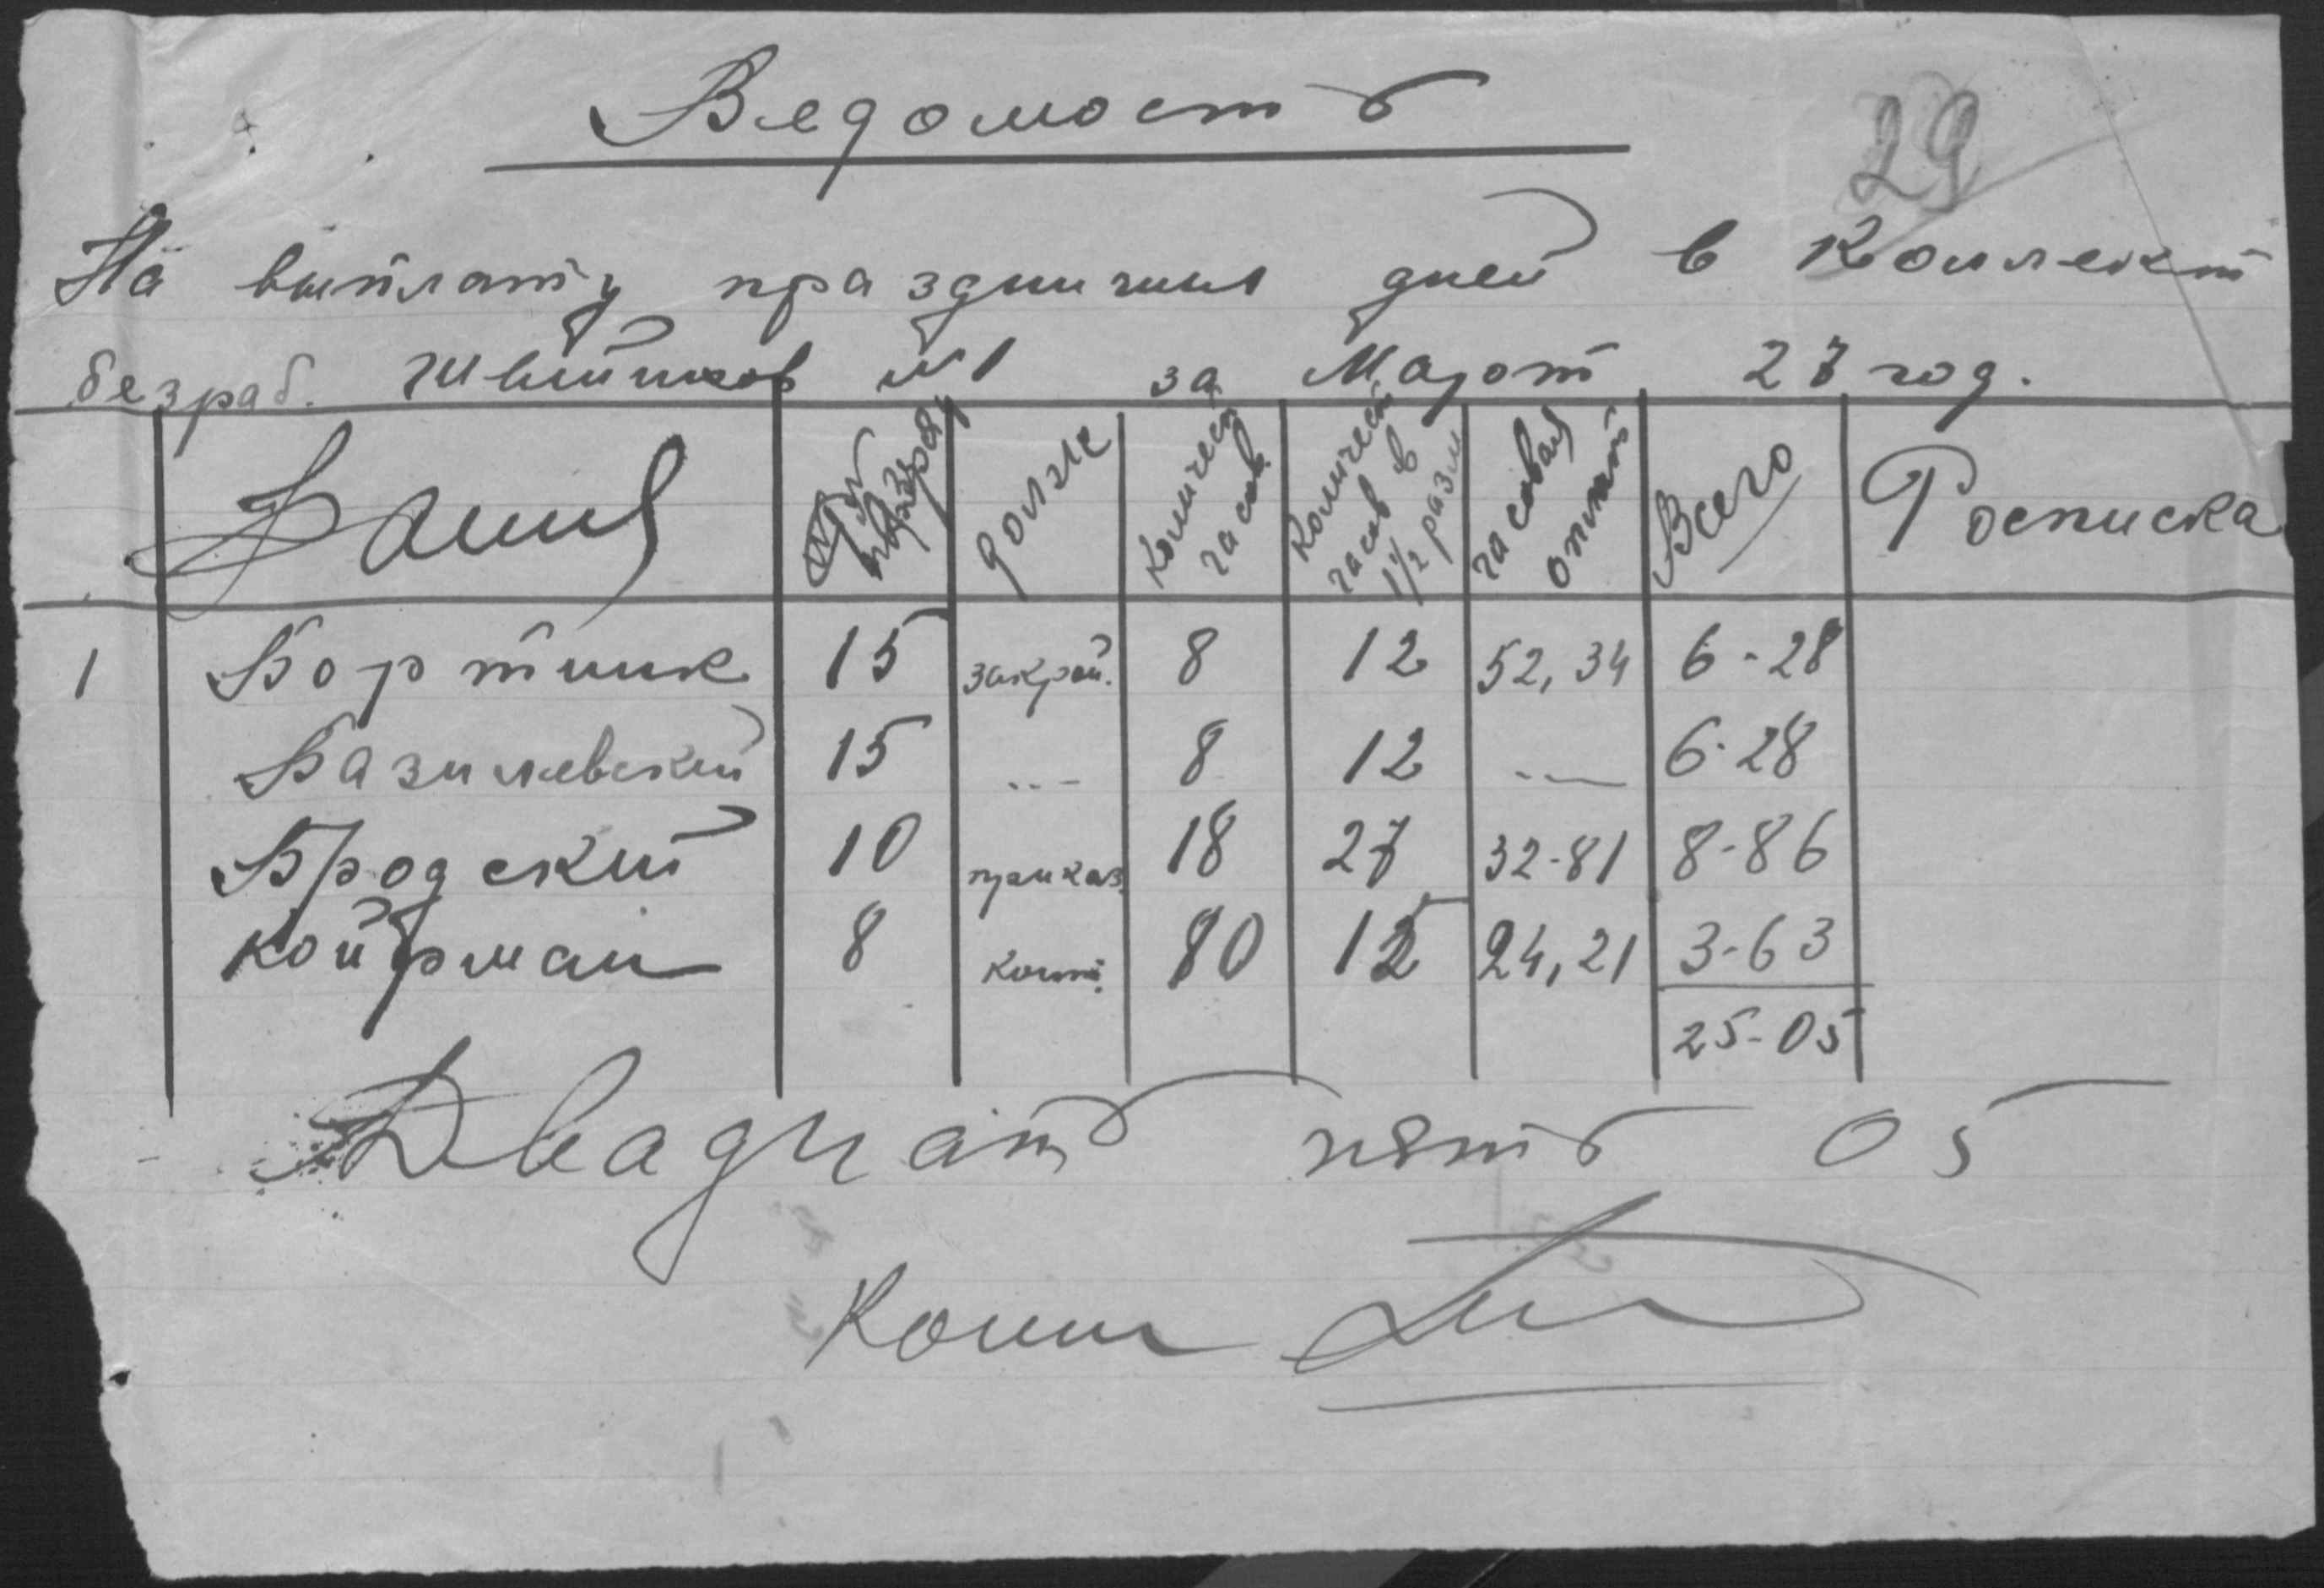 Ведомость
29
На выплату праздничных дней в Коллект
безраб. Швейников №1 за Март 27 год.
Фамил разряд долж Количест часов Количест часов в 1 1/2 разм часовая оплат Всего Росписка
1 Бортник 15 закрой. 8 12 52,34 6-28
Базилевский 15 ---- 8 12 ---- 6-28
Бродский 10 приказ. 18 27 32-81 8-86
Койфман 8 конт. 10 15 24,21 3-63
25-05
Двадцать пять 05